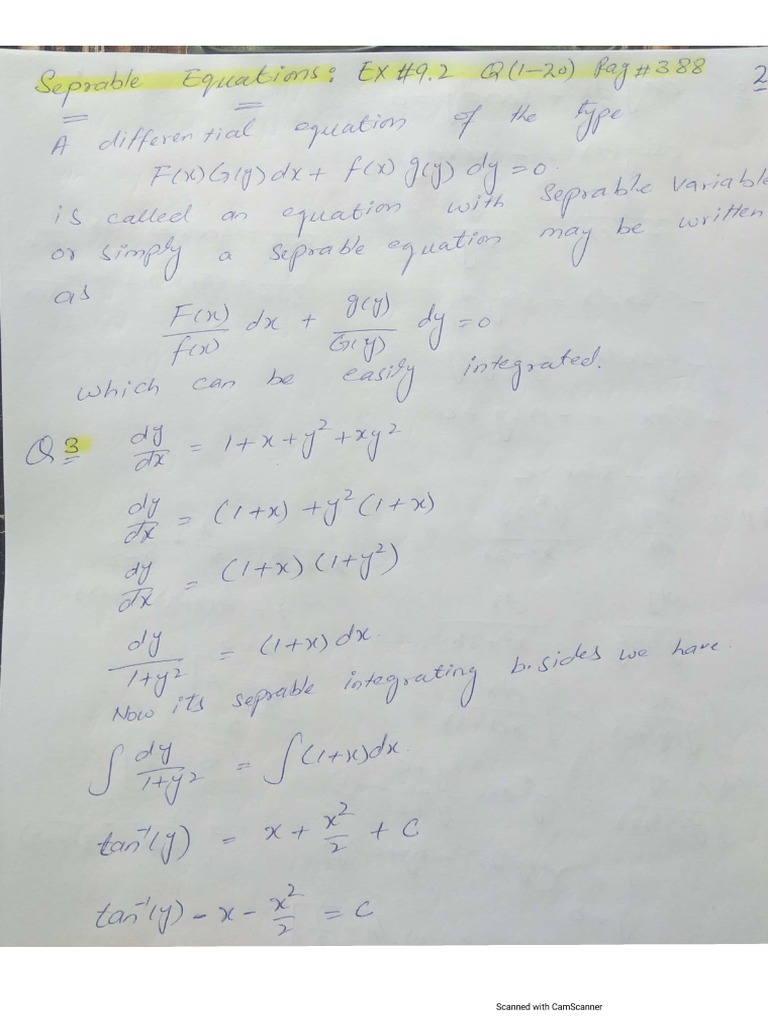 Seprable Equations: EX #9.2 Q(1-20) Pag # 388 2
A differential equation of the type
F(x)G(y)dx + f(x) g(y) dy = 0.
is called an equation with seprable variable
or simply a seprable equation may be written
as
F(x)/f(x) dx + g(y)/G(y) dy = 0
which can be easily integrated.
Q3 dy/dx = 1+x+y²+xy²
dy/dx = (1+x) + y²(1+x)
dy/dx = (1+x)(1+y²)
dy/1+y² = (1+x)dx.
Now its seprable integrating b.sides we have.
∫ dy/1+y² = ∫(1+x)dx.
tan⁻¹(y) = x + x²/2 + c
tan⁻¹(y) - x - x²/2 = c
Scanned with CamScanner